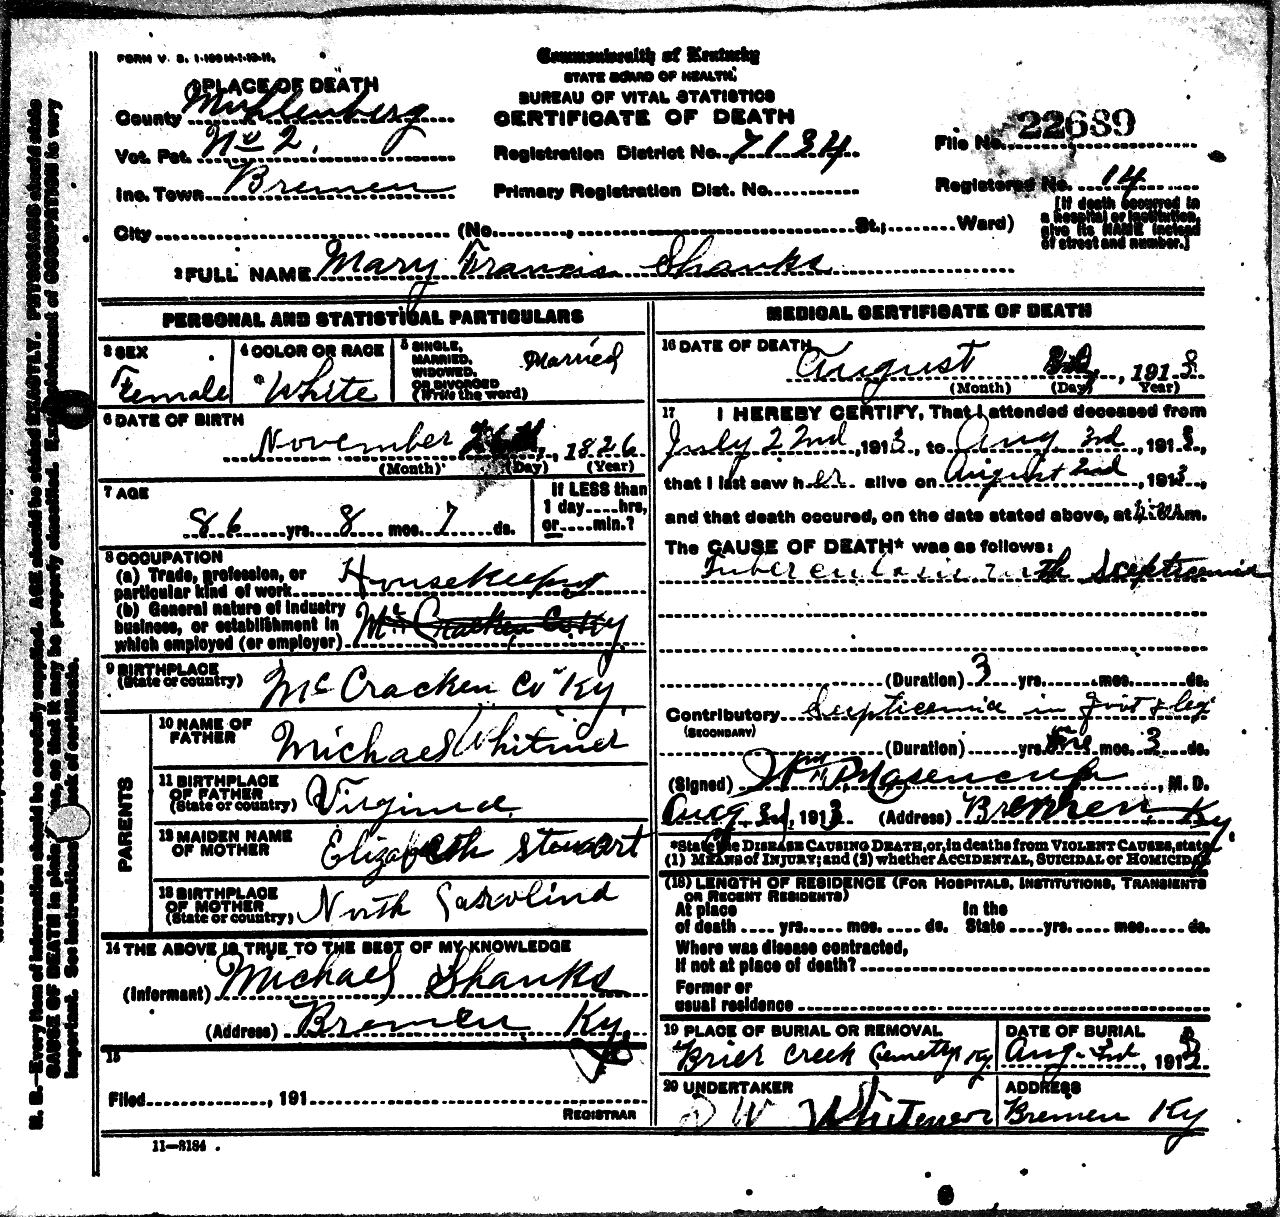 FORM V. S. 1-100 M-1-10-11.
Commonwealth of Kentucky
STATE BOARD OF HEALTH.
BUREAU OF VITAL STATISTICS
CERTIFICATE OF DEATH
1 PLACE OF DEATH
County Muhlenberg
Vot. Pct. No 2.
Inc. Town Bremen
City (No. , St.; Ward)
Registration District No. 7134
Primary Registration Dist. No.
File No. 22689
Registered No. 14
[If death occurred in
a hospital or institution,
give its NAME instead
of street and number.]
2 FULL NAME Mary Francis Shanks
PERSONAL AND STATISTICAL PARTICULARS
3 SEX
Female
4 COLOR OR RACE
White
5 SINGLE,
MARRIED,
WIDOWED,
OR DIVORCED
(Write the word)
Married
6 DATE OF BIRTH
November , 1826
(Month) (Day) (Year)
7 AGE
86 yrs. 8 mos. 7 ds.
If LESS than
1 day hrs,
or min.?
8 OCCUPATION
(a) Trade, profession, or
particular kind of work Housekeeping
(b) General nature of industry
business, or establishment in
which employed (or employer) McCracken Co. Ky
9 BIRTHPLACE
(State or country) McCracken Co Ky
PARENTS
10 NAME OF
FATHER Michael Whitmer
11 BIRTHPLACE
OF FATHER
(State or country) Virginia.
12 MAIDEN NAME
OF MOTHER Elizabeth Stewart
13 BIRTHPLACE
OF MOTHER
(State or country) North Carolina
14 THE ABOVE IS TRUE TO THE BEST OF MY KNOWLEDGE
(Informant) Michael Shanks
(Address) Bremen Ky.
15
Filed , 191
REGISTRAR
11-3184 .
MEDICAL CERTIFICATE OF DEATH
16 DATE OF DEATH
August , 1913
(Month) (Day) Year)
17 I HEREBY CERTIFY, That I attended deceased from
July 22nd, 1913, to Aug 3rd, 1913.,
that I last saw her alive on August 2nd, 1913.,
and that death occured, on the date stated above, at m.
The CAUSE OF DEATH* was as follows:
Tuberculosis with Scepticemia
(Duration) 3 yrs. mos. ds.
Contributory Scepticemia in joint & leg
(SECONDARY)
(Duration) yrs. mos. 3 ds.
(Signed) , M. D.
Aug 3d, 1913 (Address) Bremen Ky.
*State the DISEASE CAUSING DEATH, or, in deaths from VIOLENT CAUSES, state
(1) MEANS of INJURY; and (2) whether ACCIDENTAL, SUICIDAL or HOMICIDAL
(18) LENGTH OF RESIDENCE (FOR HOSPITALS, INSTITUTIONS, TRANSIENTS
OR RECENT RESIDENTS)
At place In the
of death yrs. mos. ds. State yrs. mos. ds.
Where was disease contracted,
If not at place of death?
Former or
usual residence
19 PLACE OF BURIAL OR REMOVAL
Brier Creek Cemetry Ky
DATE OF BURIAL
Aug. 3rd, 1913
20 UNDERTAKER
D W Whitmer
ADDRESS
Bremen Ky
N. B.—Every item of information should be carefully supplied. AGE should be stated EXACTLY. PHYSICIANS should state
CAUSE OF DEATH in plain terms, so that it may be properly classified. Exact statement of OCCUPATION is very
important. See instructions on back of certificate.